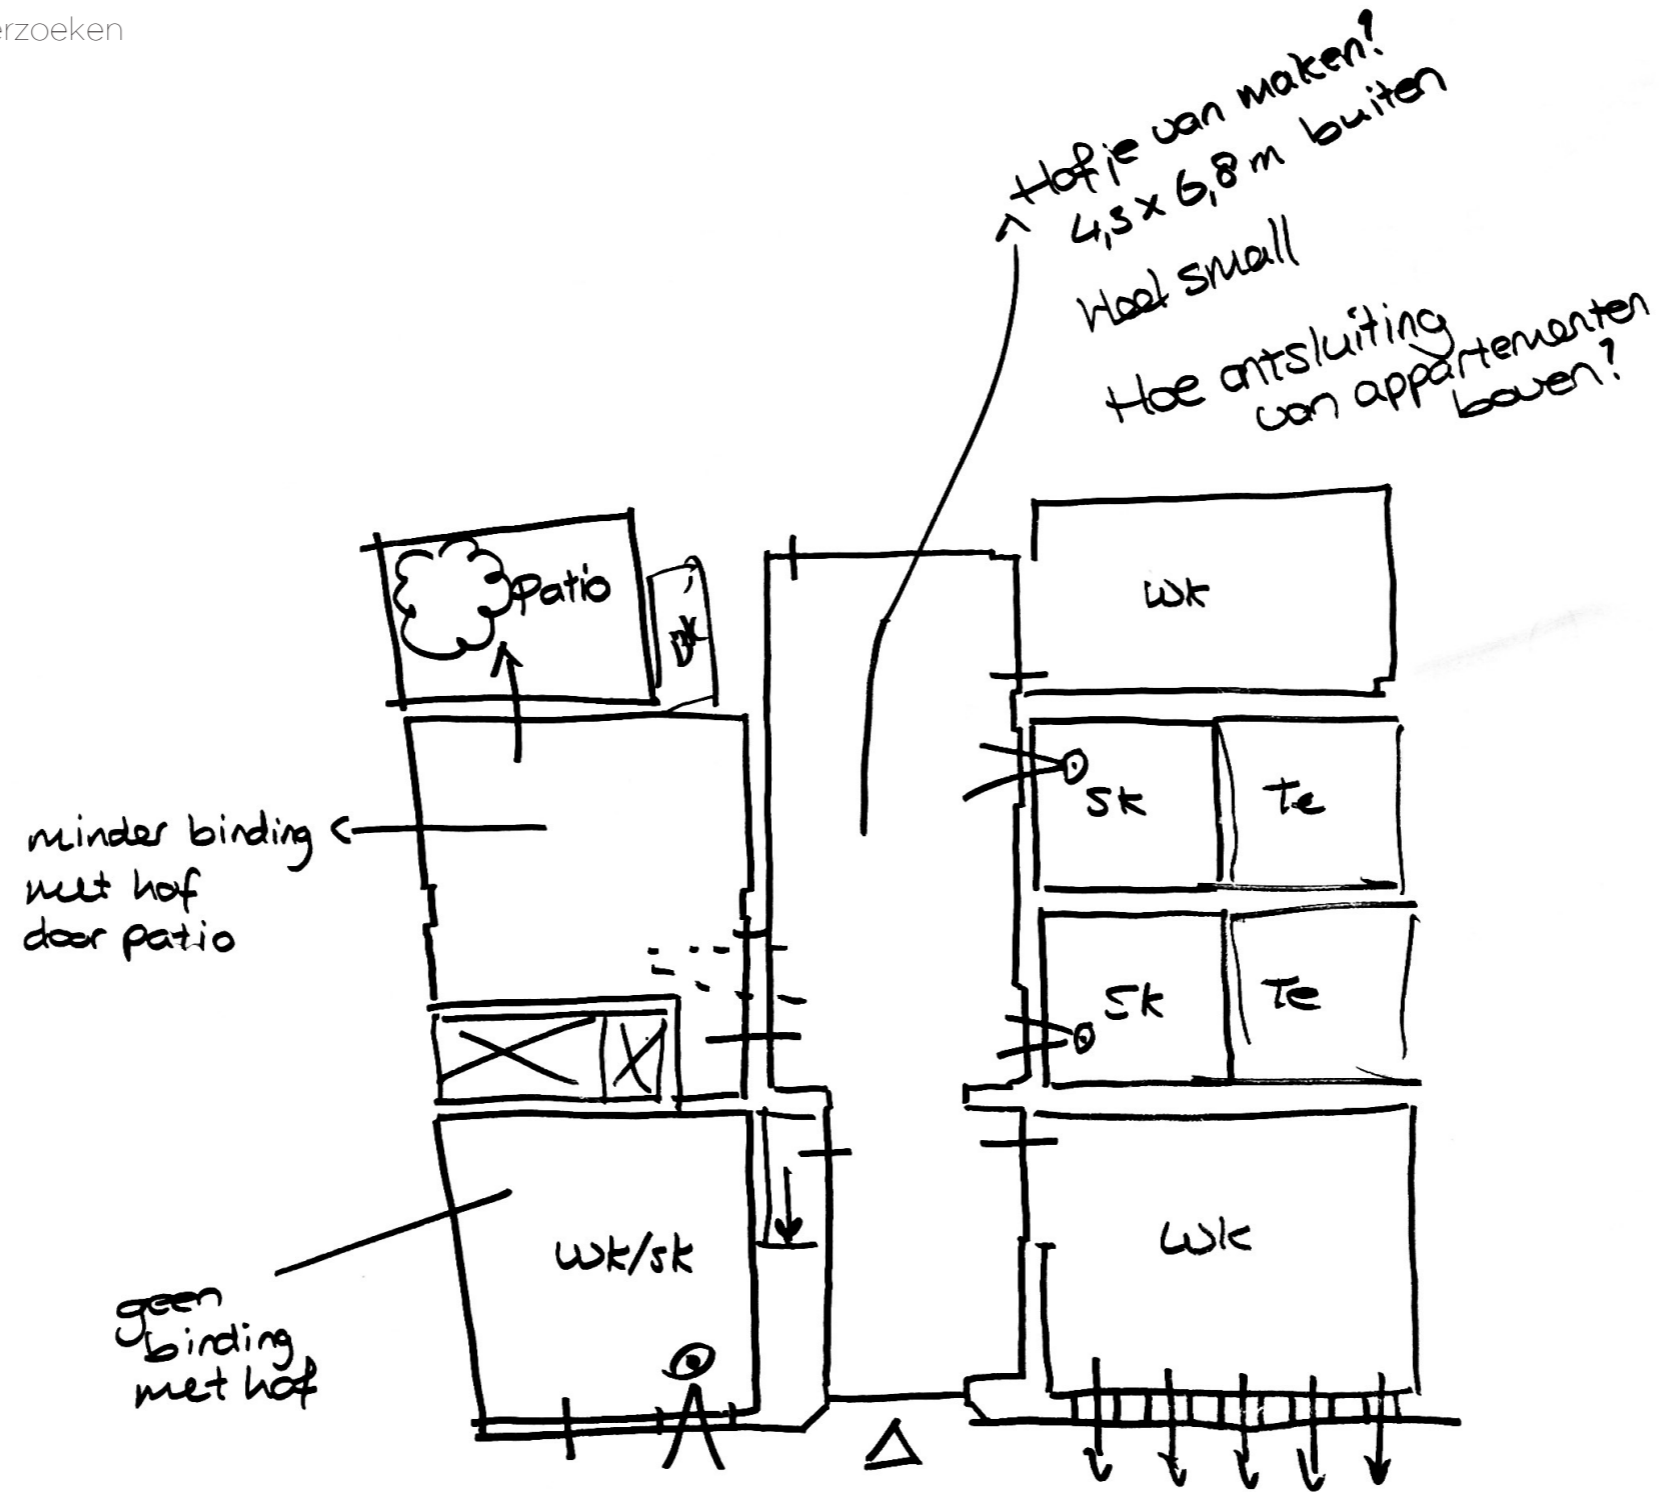 erzoeken
Hofje van maken?
4,5 x 6,8 m buiten
Heel small
Hoe ontsluiting
van appartementen
boven?
Patio
WK
SK
Te
minder binding
met hof
door patio
SK
Te
WK/SK
WK
geen
binding
met hof